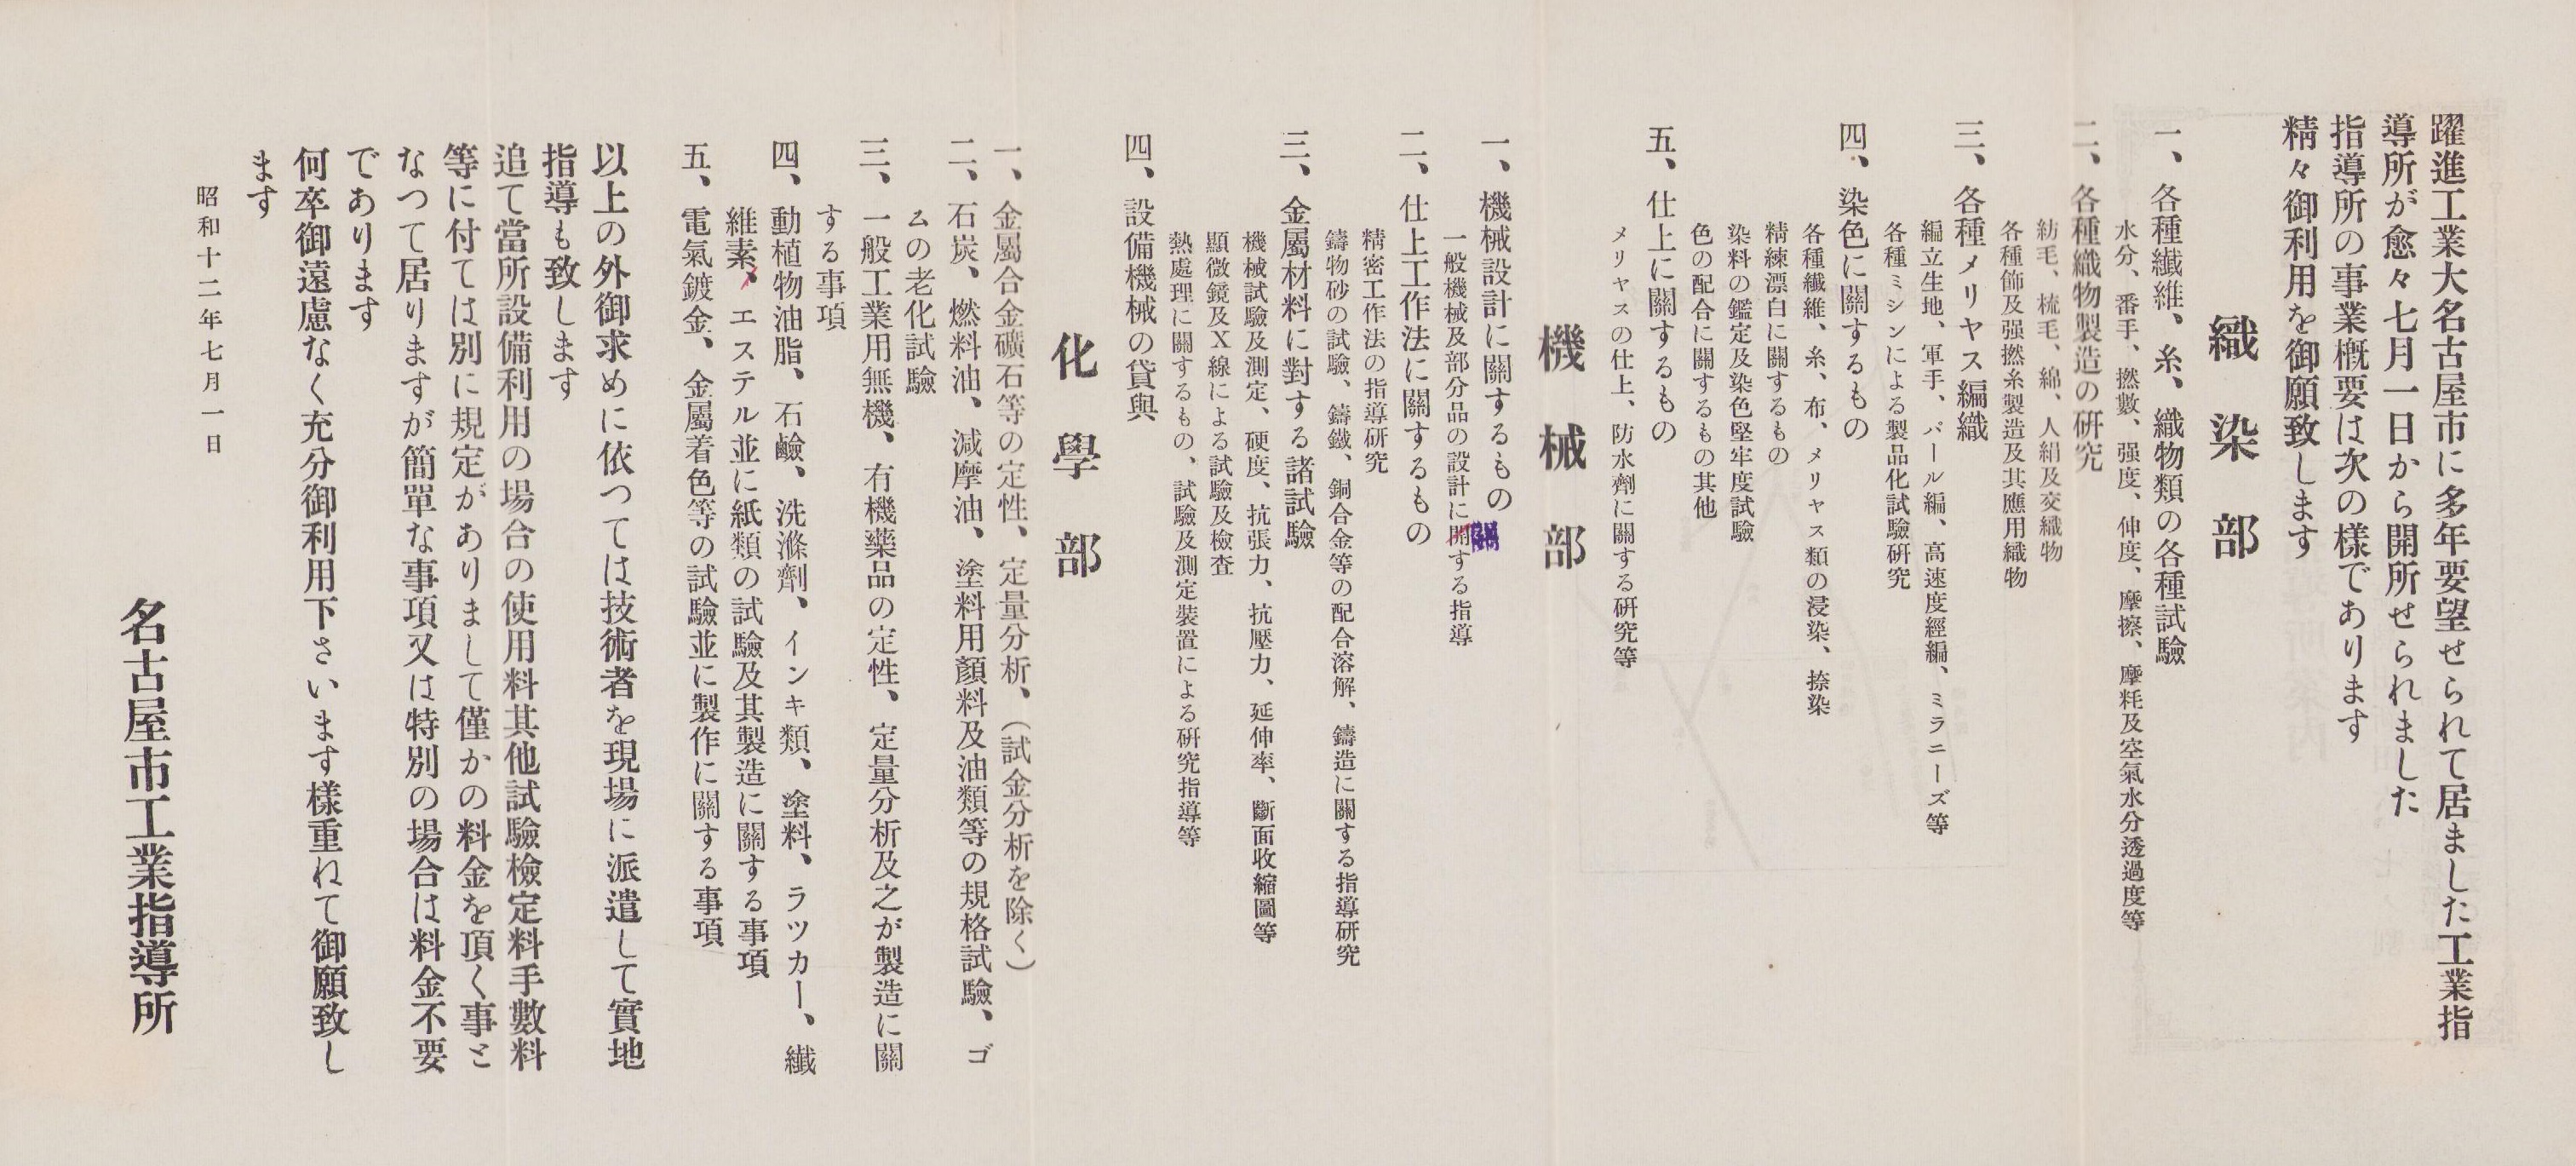 躍進工業大名古屋市に多年要望せられて居ました工業指
導所が愈々七月一日から開所せられました
指導所の事業概要は次の樣であります
精々御利用を御願致します
織染部
一、各種纖維、糸、織物類の各種試驗
水分、番手、撚數、强度、伸度、摩擦、摩耗及空氣水分透過度等
二、各種織物製造の研究
紡毛、梳毛、綿、人絹及交織物
各種飾及强撚糸製造及其應用織物
三、各種メリヤス編織
編立生地、軍手、パール編、高速度經編、ミラニーズ等
各種ミシンによる製品化試驗研究
四、染色に關するもの
各種纖維、糸、布、メリヤス類の浸染、捺染
精練漂白に關するもの
染料の鑑定及染色堅牢度試驗
色の配合に關するもの其他
五、仕上に關するもの
メリヤスの仕上、防水劑に關する研究等
機械部
一、機械設計に關するもの
一般機械及部分品の設計に關する指導
二、仕上工作法に關するもの
精密工作法の指導研究
鑄物砂の試驗、鑄鐵、銅合金等の配合溶解、鑄造に關する指導研究
三、金屬材料に對する諸試驗
機械試驗及測定、硬度、抗張力、抗壓力、延伸率、斷面收縮圖等
顯微鏡及X線による試驗及檢査
熱處理に關するもの、試驗及測定裝置による研究指導等
四、設備機械の貸與
化學部
一、金屬合金礦石等の定性、定量分析、（試金分析を除く）
二、石炭、燃料油、減摩油、塗料用顏料及油類等の規格試驗、ゴ
ムの老化試驗
三、一般工業用無機、有機藥品の定性、定量分析及之が製造に關
する事項
四、動植物油脂、石鹼、洗滌劑、インキ類、塗料、ラツカー、纖
維素、エステル並に紙類の試驗及其製造に關する事項
五、電氣鍍金、金屬着色等の試驗並に製作に關する事項
以上の外御求めに依つては技術者を現場に派遣して實地
指導も致します
追て當所設備利用の場合の使用料其他試驗檢定料手數料
等に付ては別に規定がありまして僅かの料金を頂く事と
なつて居りますが簡單な事項又は特別の場合は料金不要
であります
何卒御遠慮なく充分御利用下さいます樣重ねて御願致し
ます
昭和十二年七月一日
名古屋市工業指導所